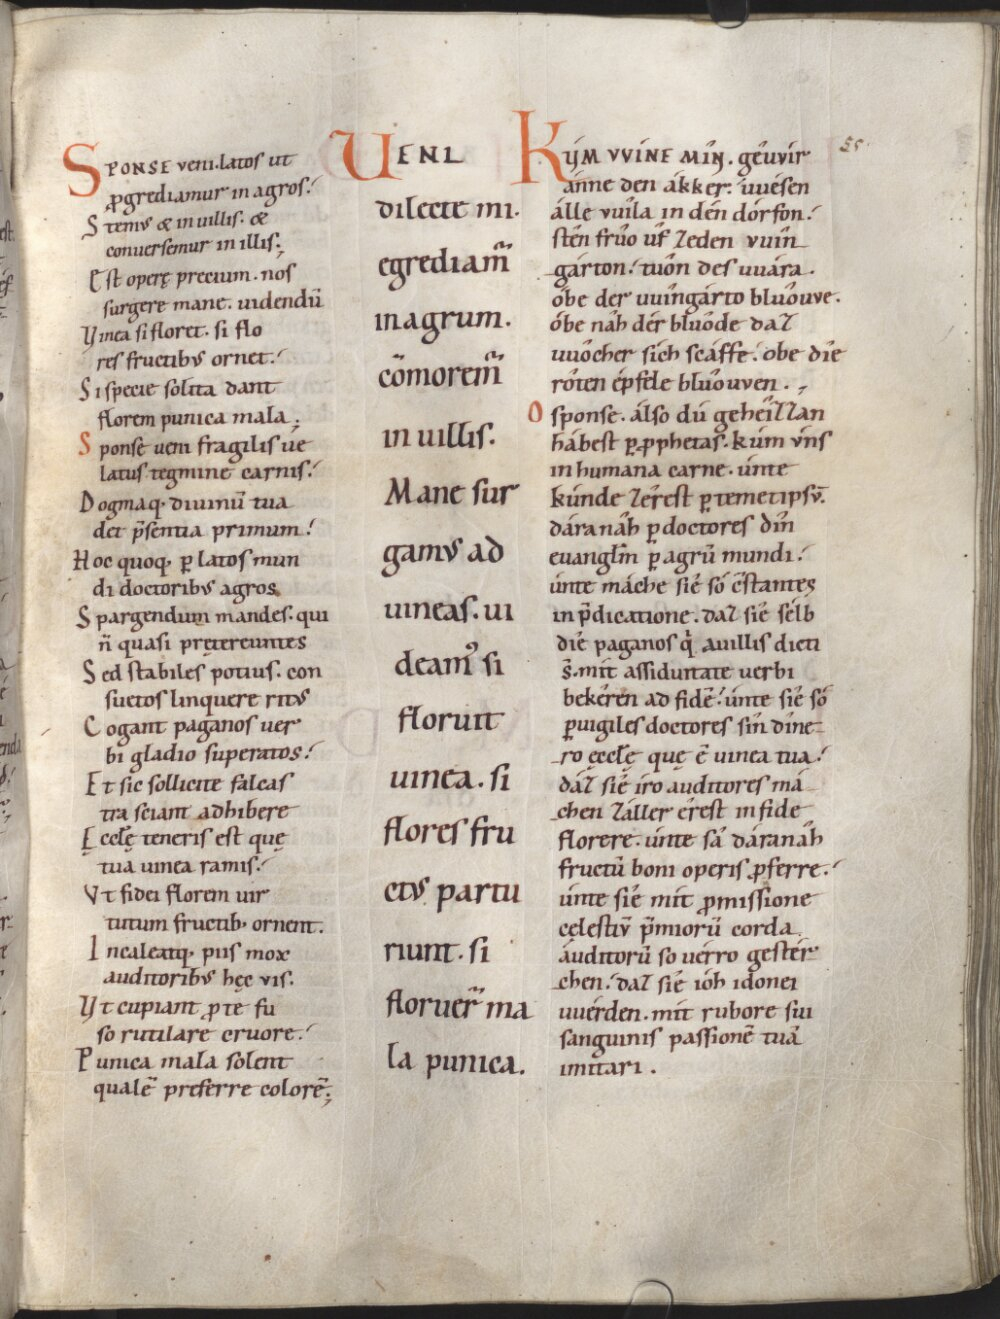 SPONSE veni. latos ut
ꝓgrediamur in agros.
Stemus & in uillis. &
conuersemur in illis;
Est operę precium. nos
surgere mane. uidendū
Vinea si floret. si flo
res fructibus ornet.
Si specie solita dant
florem punica mala;
Sponse ueni fragilis ue
latus tegmine carnis.
Dogmaq. diuinū tua
det p̄sentia primum.
Hoc quoq. ꝑ latos mun
di doctoribus agros
Spargendum mandes. qui
n̄ quasi pretereuntes
Sed stabiles potius. con
suetos linquere ritus
Cogant paganos uer
bi gladio superatos.
Et sic sollicite falcas
tra sciant adhibere
Ecclę teneris est quę
tua uinea ramis.
Vt fidei florem uir
tutum fructib. ornent.
Incaleatq. piis mox
auditoribus hęc vis.
Vt cupiant ꝓ te fu
so rutilare cruore.
Punica mala solent
qualē preferre colorē;
UENI
dilecte mi.
egrediam̄
in agrum.
cōmorem̄
in uillis.
Mane sur
gamus ad
uineas. ui
deam᷒ si
floruit
uinea. si
flores fru
ctus partu
riunt. si
floruer̄ ma
la punica.
55.
KVM VVINE MIN. géuvir
ánne den ákker. vvésen
álle vuíla in dén dórfon.
stén frûo ûf zeden vuín
gárton. tuôn des vvára.
óbe der vvíngárto blûouve.
óbe nâh dér blûode daz
vvôcher sich scáffe. obe díe
rôten épfele blûouven.
O sponse. álso dû gehéizzan
hábest ꝑ ꝓphetas. kúm úns
in humana carne. únte
kúnde zérest ꝑ temetipsū.
dáranâh ꝑ doctores dín
euangliū ꝑ agrū mundi.
únte máche síe só c̄stantes
in p̄dicatione. daz síe sélb
díe paganos q́ a uillis dicti
s̄. mít assiduitate uerbi
bekéren ad fidē. únte síe só
ꝑuigiles doctores sín díne
ro ęcclę quę ē uinea tua.
dáz síe íro auditores má
chen záller érest in fide
florere. únte sâ dáranâh
fructū boni operis ꝓferre.
únte síe mít ꝓmissione
cęlestiū p̄miorū corda
áuditorū so uérro gestér
chen. daz síe ióh idonei
vuérden. mít rubore sui
sanguinis passionē tuā
imitari.